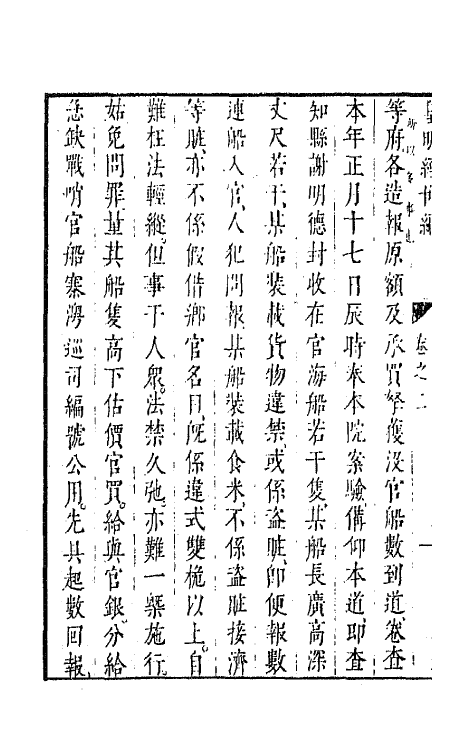 皇明經世編
卷之二
等府各造報原額及承買拏獲沒官船數到道卷查
本年正月十七日辰時奉本院案驗備仰本道卽查
知縣謝明德封收在官海船若干隻某船長廣高深
丈尺若干某船裝載貨物違禁或係盜贓卽便報數
連船入官人犯問報某船裝載食米不係盜贓接濟
等贓亦不係假借鄉官名目旣係違式雙桅以上自
難枉法輕縱但事干人衆法禁久弛亦難一槩施行
姑免問罪量其船隻高下估價官買給與官銀分給
急缺戰哨官船寨灣巡司編號公用先具起數回報